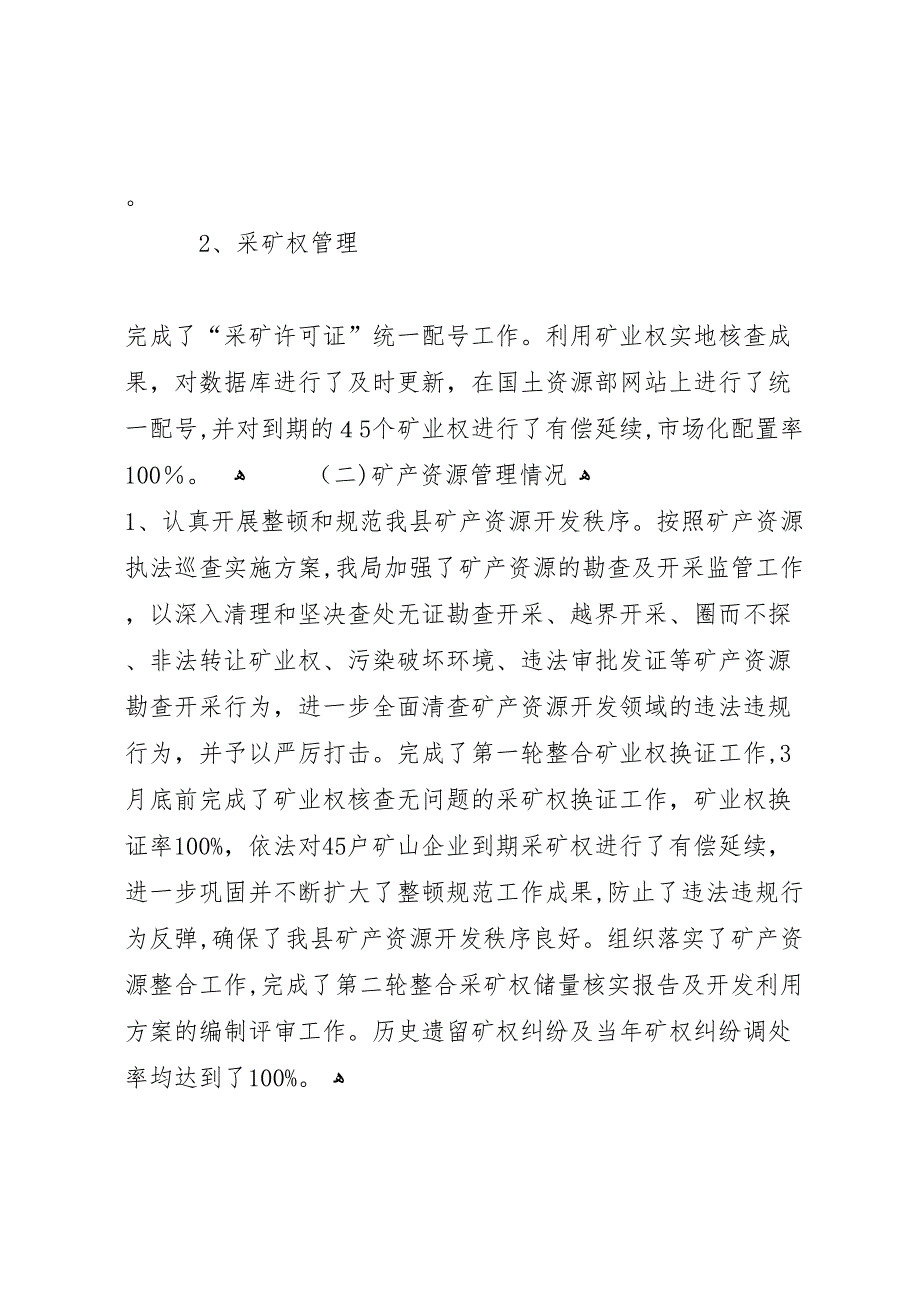 。
2、采矿权管理
完成了“采矿许可证”统一配号工作。利用矿业权实地核查成
果，对数据库进行了及时更新，在国土资源部网站上进行了统
一配号,并对到期的４5个矿业权进行了有偿延续,市场化配置率
100％。 ﻫ （二)矿产资源管理情况 ﻫ
1、认真开展整顿和规范我县矿产资源开发秩序。按照矿产资源
执法巡查实施方案,我局加强了矿产资源的勘查及开采监管工作
，以深入清理和坚决查处无证勘查开采、越界开采、圈而不探
、非法转让矿业权、污染破坏环境、违法审批发证等矿产资源
勘查开采行为，进一步全面清查矿产资源开发领域的违法违规
行为，并予以严厉打击。完成了第一轮整合矿业权换证工作,3
月底前完成了矿业权核查无问题的采矿权换证工作，矿业权换
证率100%，依法对45户矿山企业到期采矿权进行了有偿延续，
进一步巩固并不断扩大了整顿规范工作成果,防止了违法违规行
为反弹,确保了我县矿产资源开发秩序良好。组织落实了矿产资
源整合工作,完成了第二轮整合采矿权储量核实报告及开发利用
方案的编制评审工作。历史遗留矿权纠纷及当年矿权纠纷调处
率均达到了100%。 ﻫ